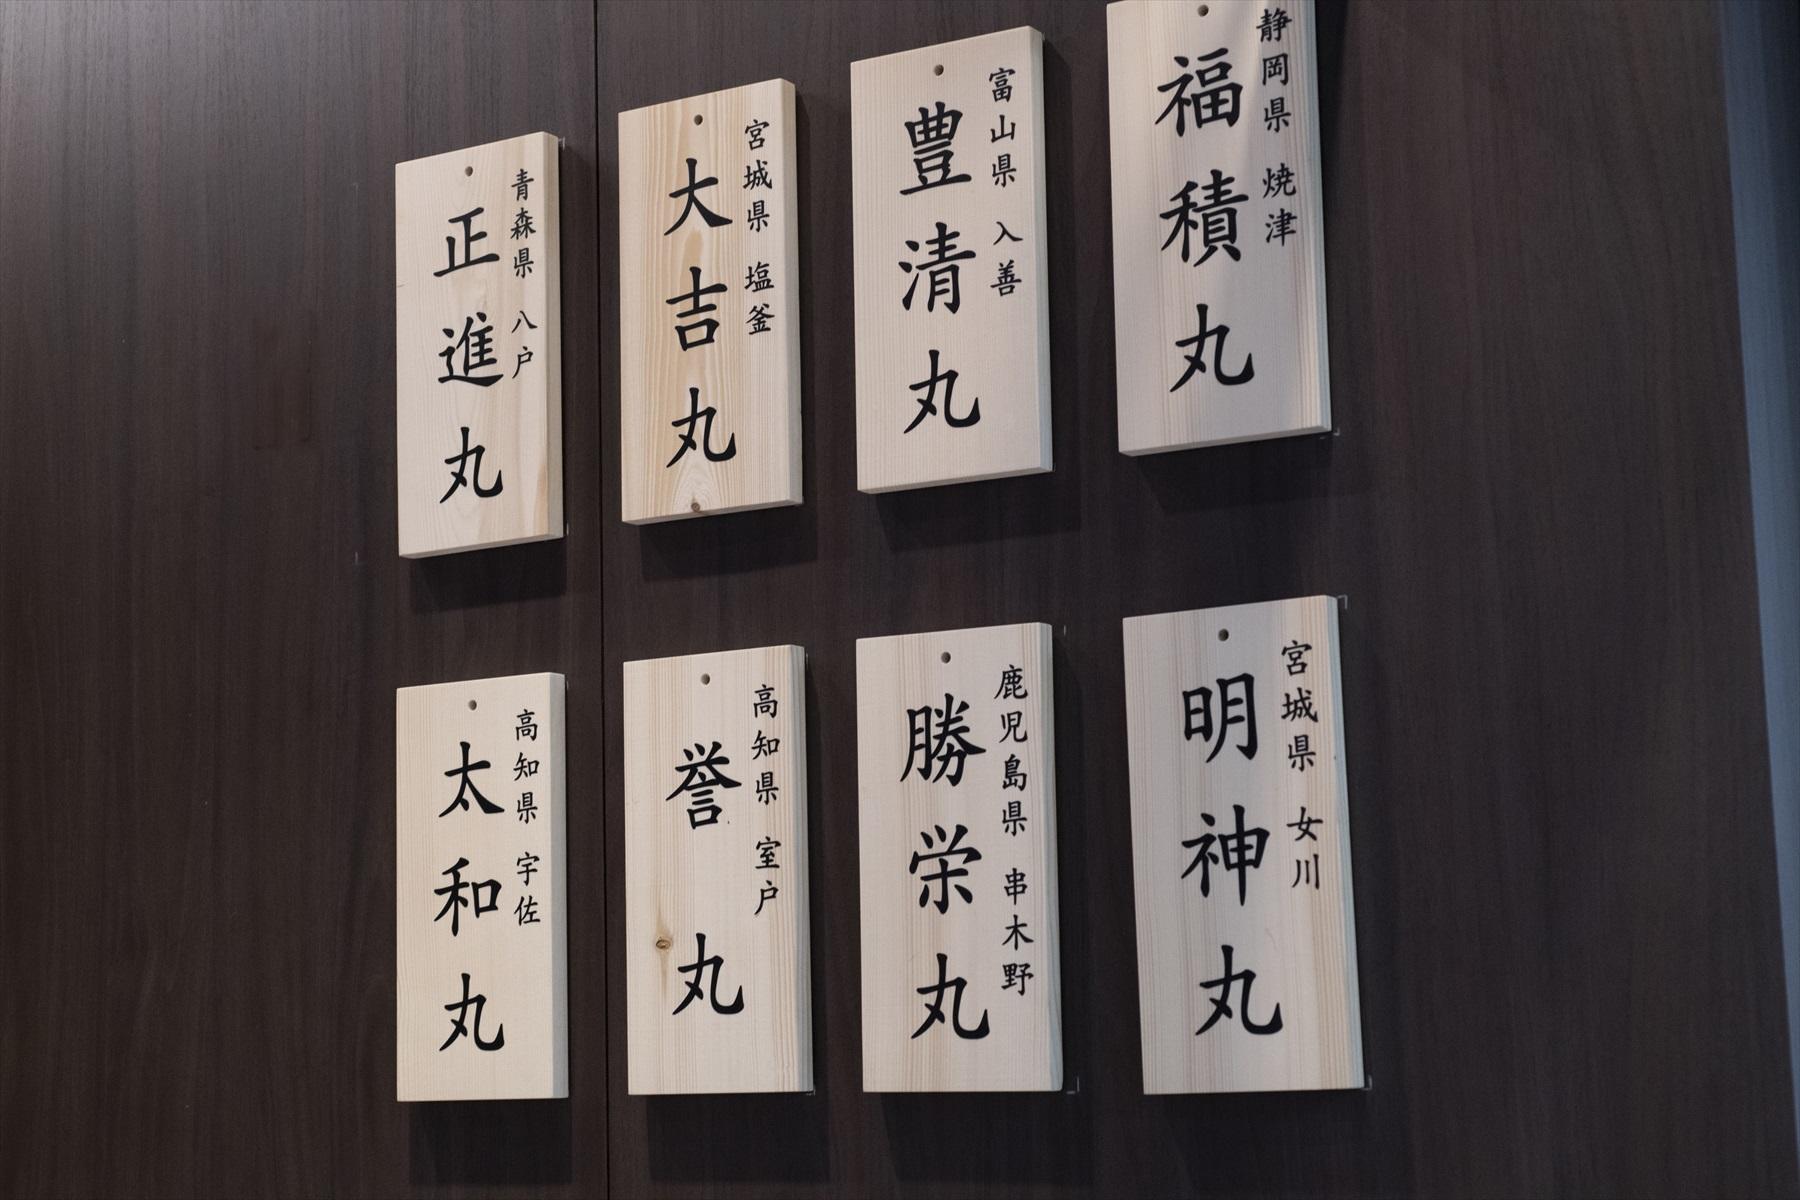 静岡県 焼津
福積丸
富山県 入善
豊清丸
宮城県 塩釜
大吉丸
青森県 八戸
正進丸
宮城県 女川
明神丸
鹿児島県 串木野
勝栄丸
高知県 室戸
誉丸
高知県 宇佐
太和丸